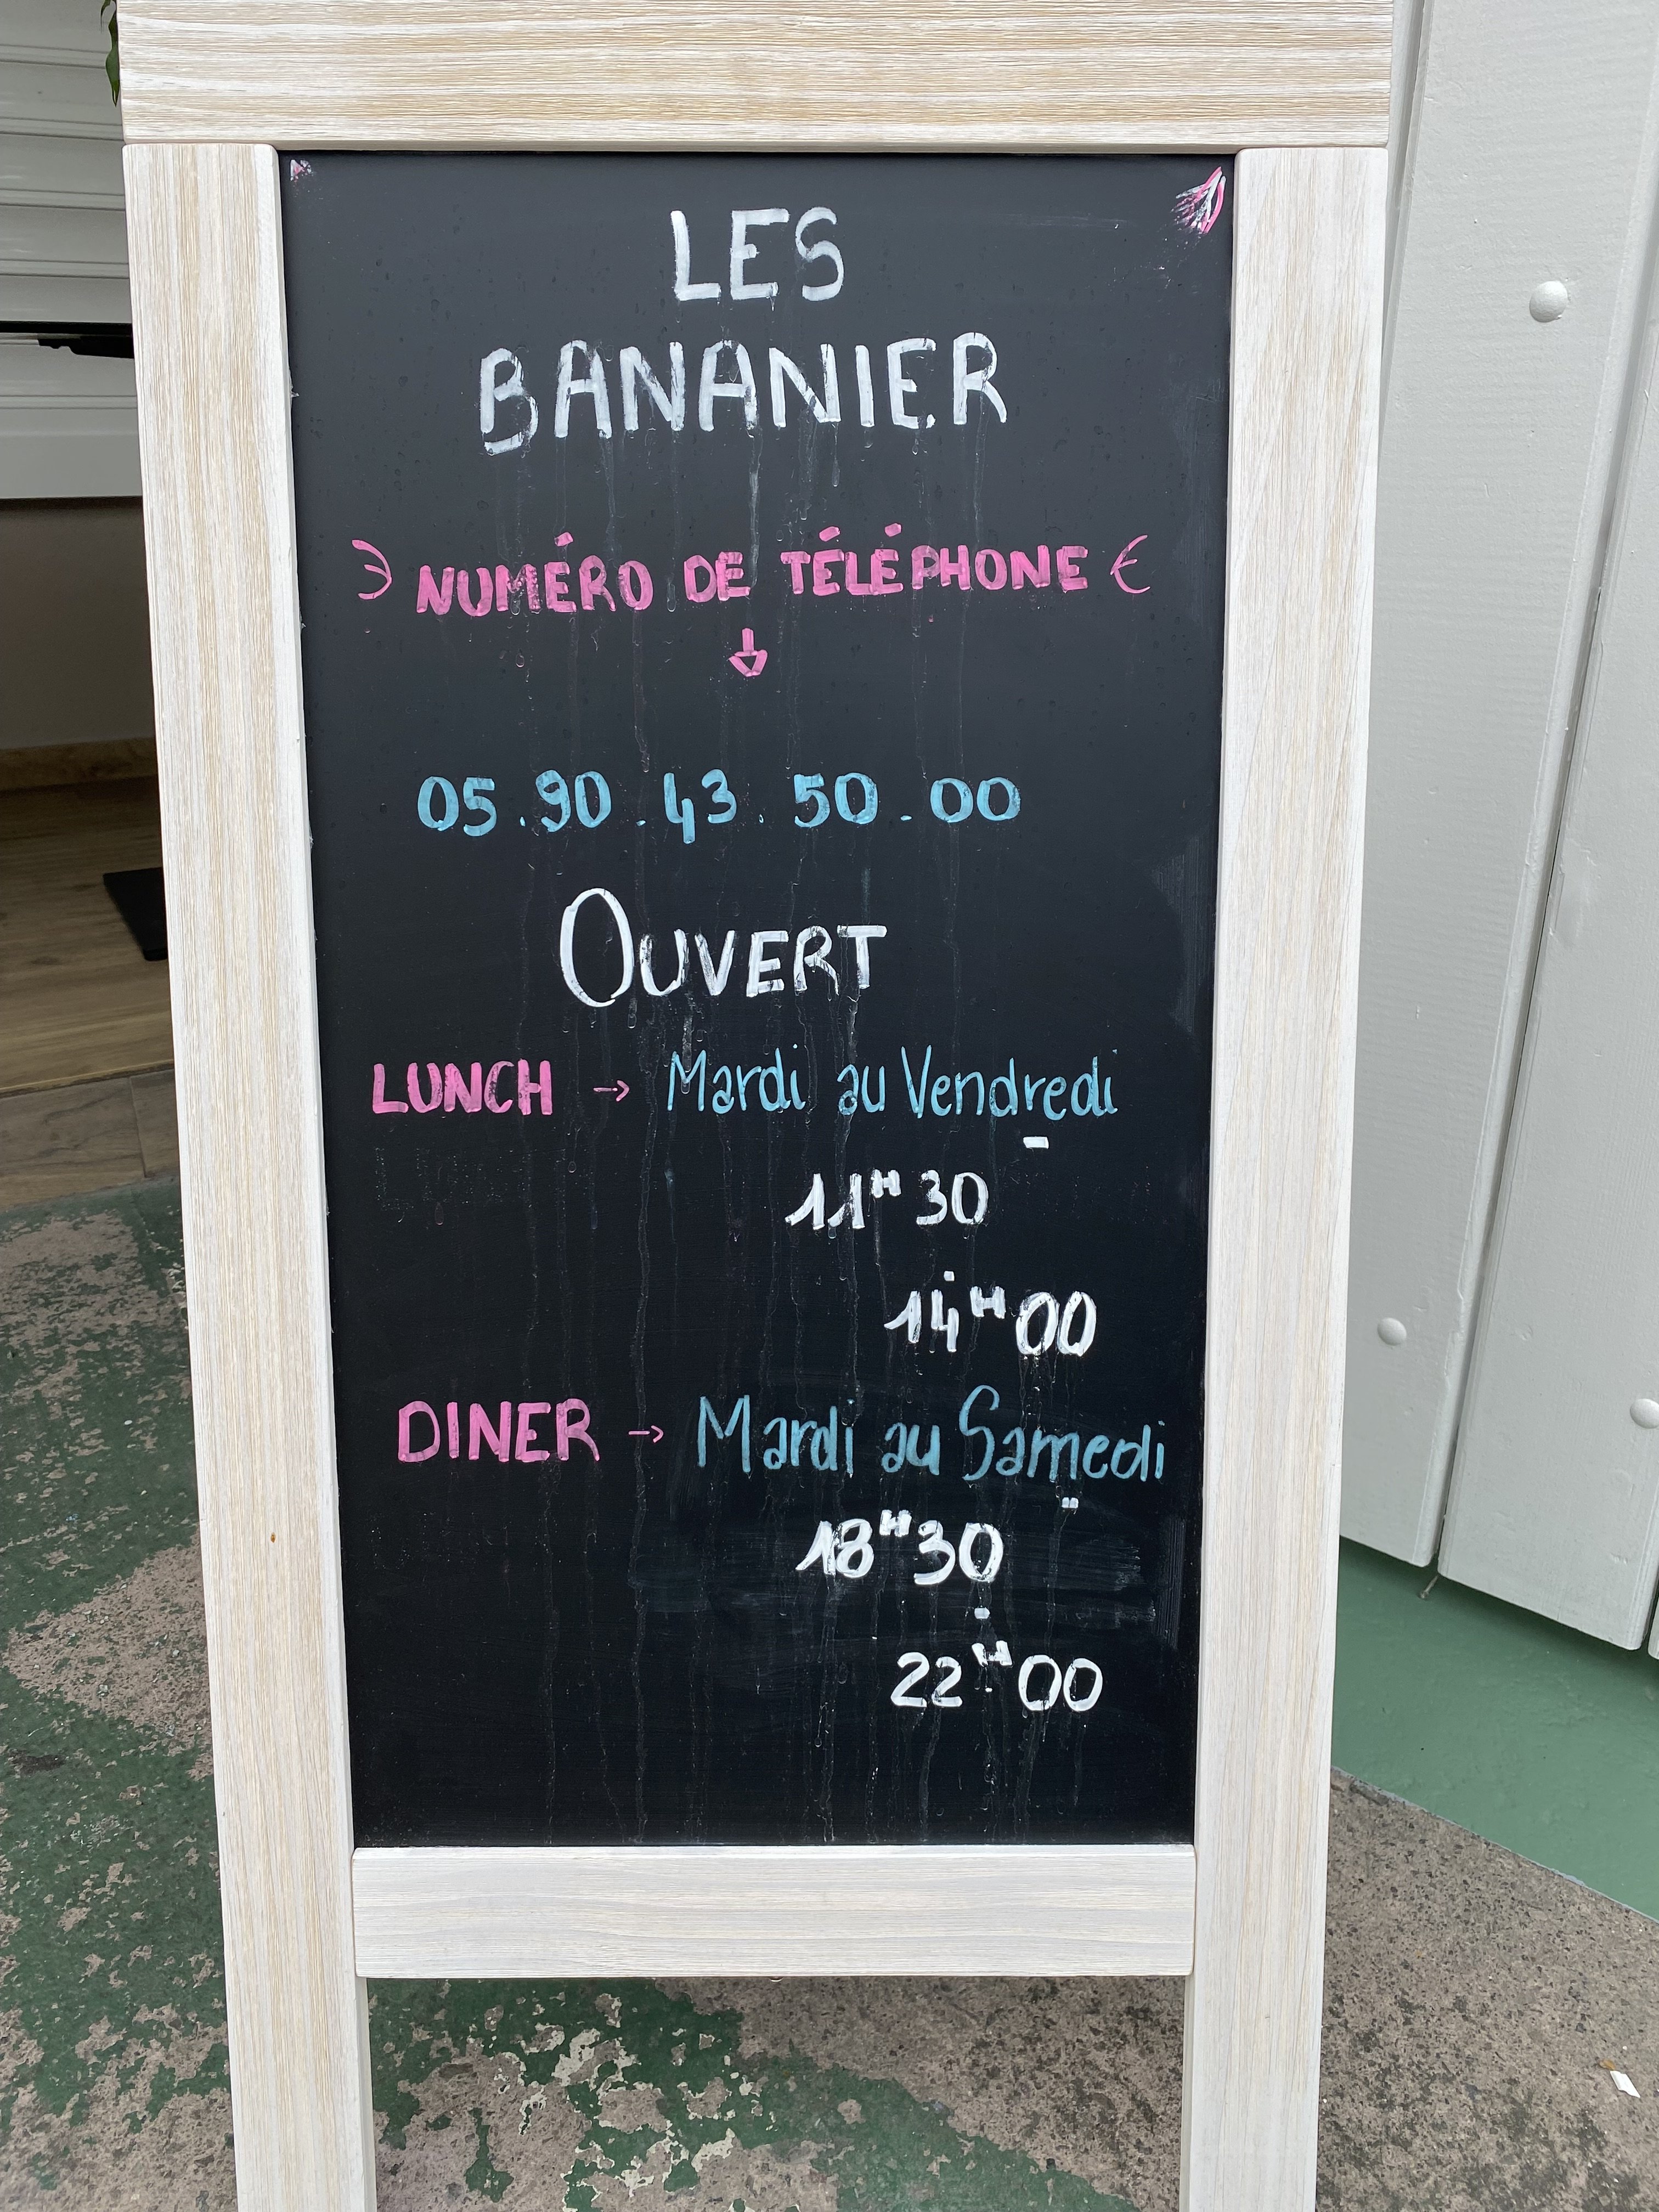 LES
BANANIER
NUMÉRO DE TÉLÉPHONE
05.90.43.50.00
OUVERT
LUNCH → Mardi au Vendredi
11H30
14H00
DINER → Mardi au Samedi
18H30
22H00